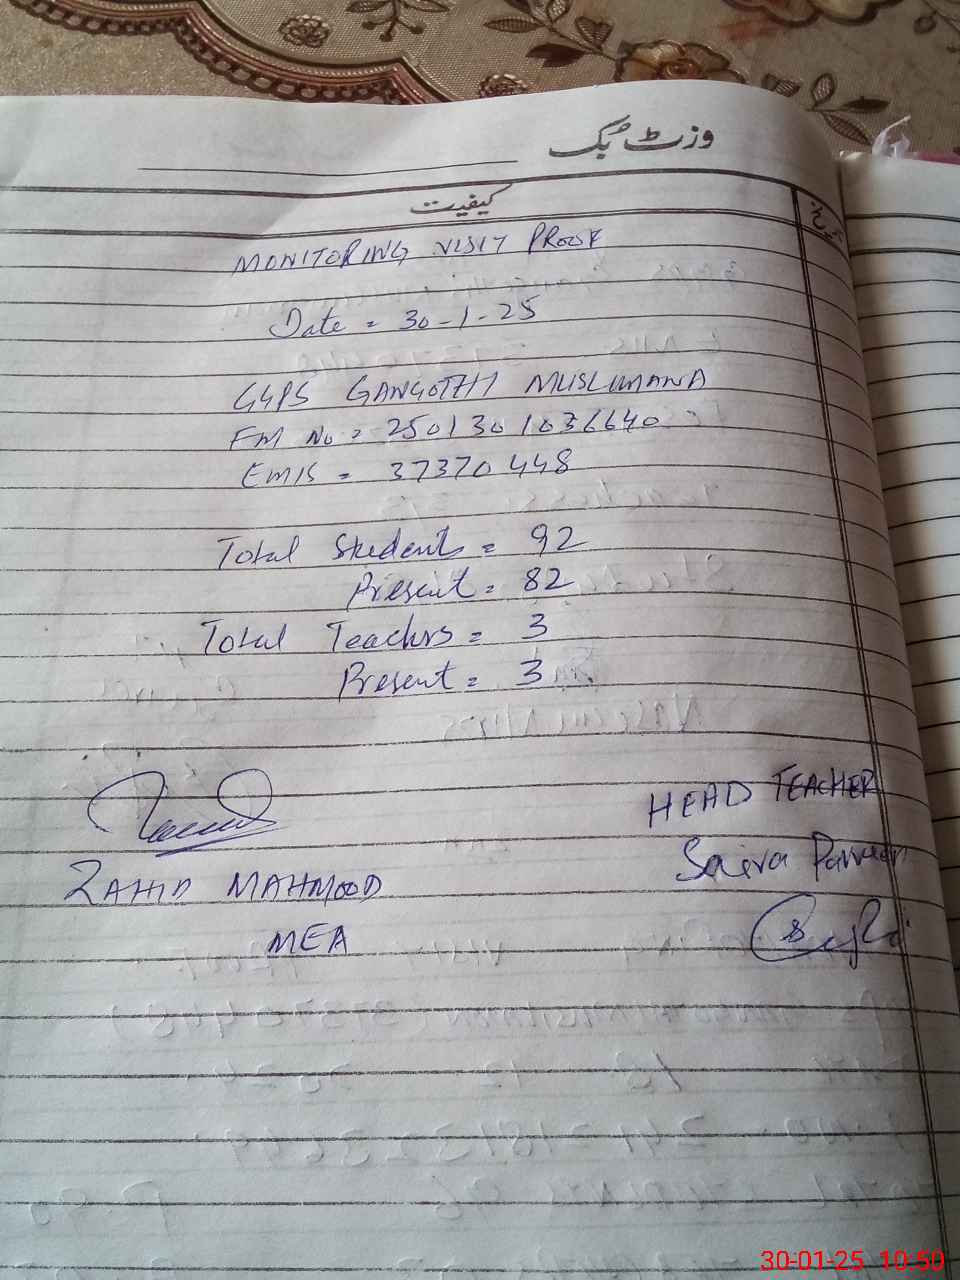 وزٹ بُک
کیفیت
تاریخ
MONITORING VISIT PROOF
Date = 30-1-25
GGPS GANGOTHI MUSLIMANA
FM No = 2501301036640
EMIS = 37370448
Total Students = 92
Present = 82
Total Teachrs = 3
Present = 3
HEAD TEACHER
ZAHID MAHMOOD
Saira Parveen
MEA
30-01-25 10:50